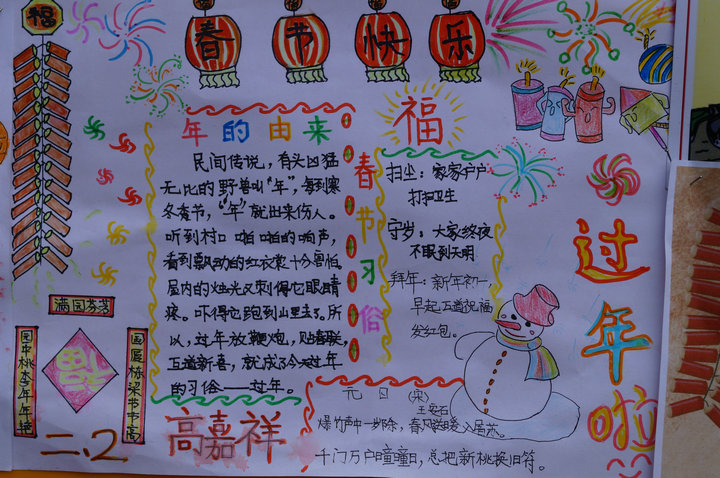 福
春节快乐
年的由来
民间传说，有头凶猛
无比的野兽叫“年”，每到寒
冬春节，“年”就出来伤人。
听到村口啪啪的响声，
看到飘动的红衣裳十分害怕。
屋内的烛光又刺得它眼睛
疼。吓得它跑到山里去了。所
以，过年放鞭炮，贴春联，
互道新喜，就成了今天过年
的习俗——过年。
春节习俗
福
扫尘：家家户户
打扫卫生
守岁：大家终夜
不眠到天明
拜年：新年初一
早起互道祝福
发红包。
过年啦
满园芬芳
园中桃李年年艳
国厦栋梁节节高
二.2
高嘉祥
元日
(宋)
王安石
爆竹声中一岁除，春风送暖入屠苏。
千门万户曈曈日，总把新桃换旧符。